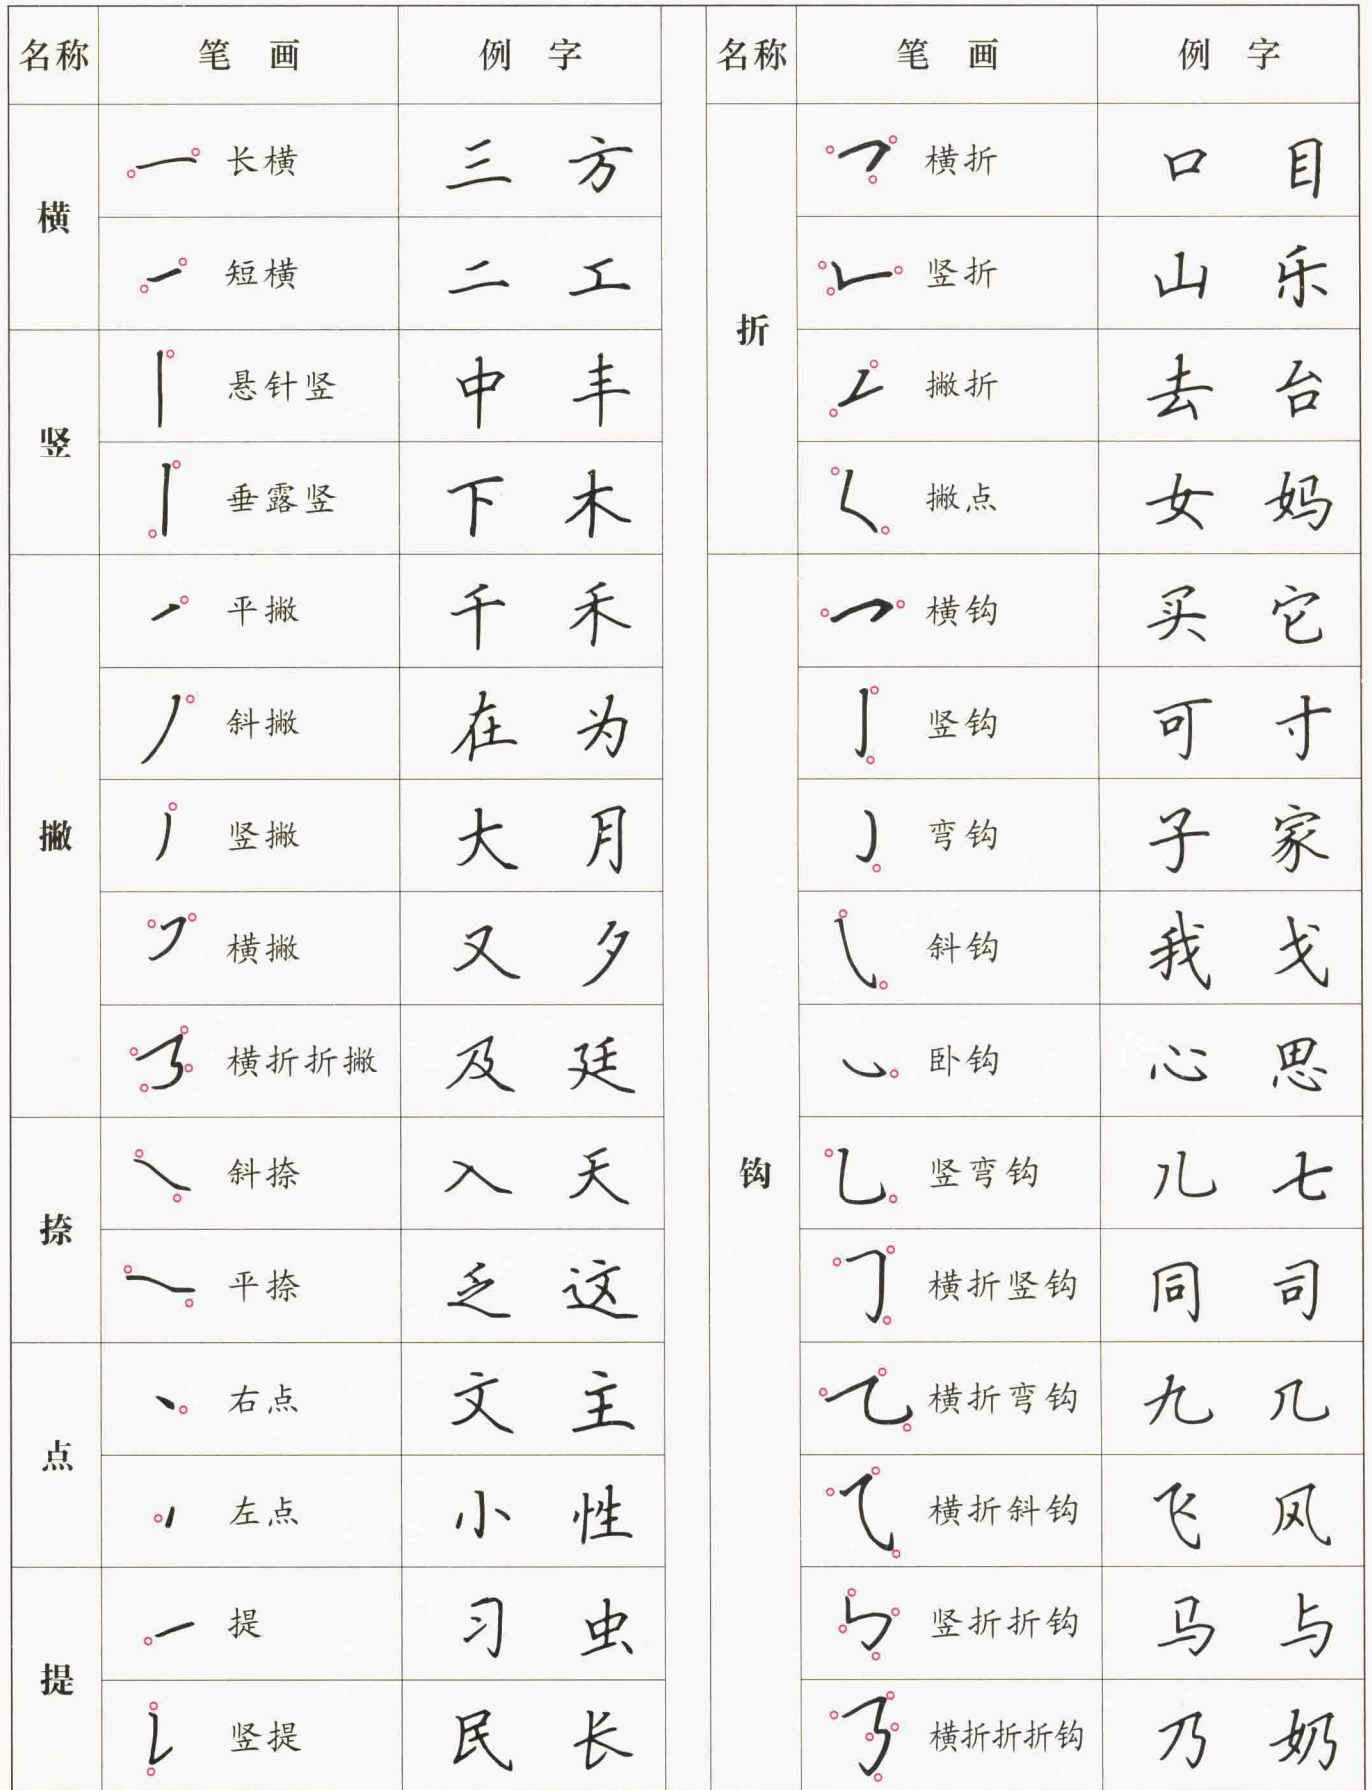 名称 笔画 例字
横
长横 三 方
短横 二 工
竖
悬针竖 中 丰
垂露竖 下 木
撇
平撇 千 禾
斜撇 在 为
竖撇 大 月
横撇 又 夕
横折折撇 及 廷
捺
斜捺 入 天
平捺 乏 这
点
右点 文 主
左点 小 性
提
提 习 虫
竖提 民 长
名称 笔画 例字
折
横折 口 目
竖折 山 乐
撇折 去 台
撇点 女 妈
钩
横钩 买 它
竖钩 可 寸
弯钩 子 家
斜钩 我 戈
卧钩 心 思
竖弯钩 儿 七
横折竖钩 同 司
横折弯钩 九 几
横折斜钩 飞 风
竖折折钩 马 与
横折折折钩 乃 奶